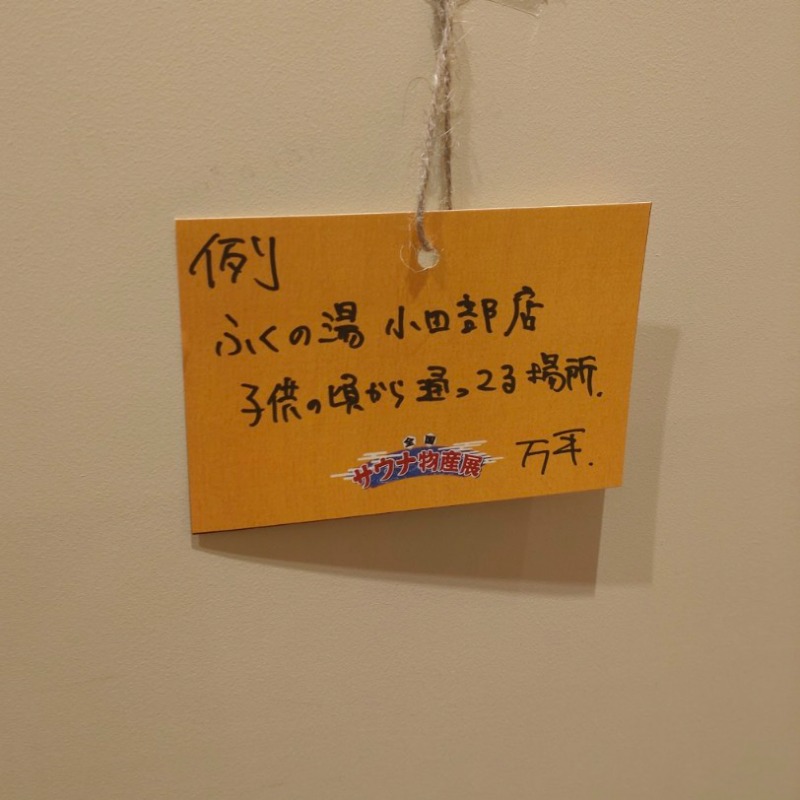 例
ふくの湯 小田部店
子供の頃から通ってる場所.
全国
サウナ物産展